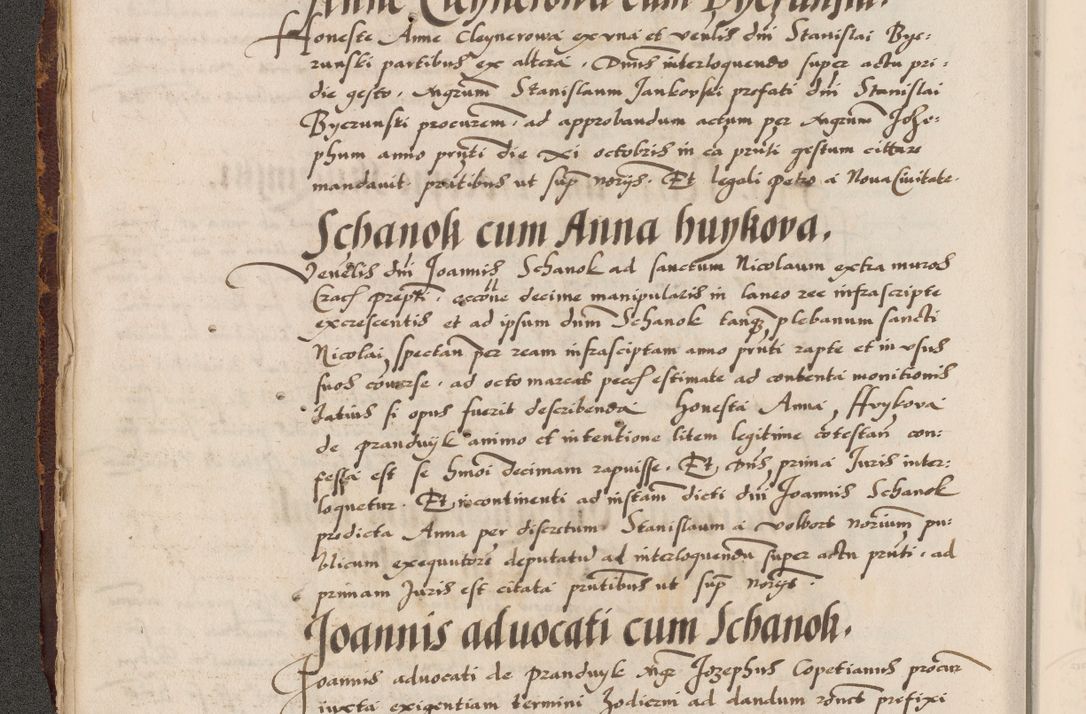 Anne Cleynerowa cum Byerunski.
Honeste Anne Cleynerowa ex vna et venlis dni Stanislai Bye:
runski partibus ex altera. Dnus interloquendo super actu pri:
die gesto. Mgrum Stanislaum Jankovski prefati dni Stanislai
Byerunski procurem. ad approbandum actum per Mgrum Joze:
phum anno pnti die xi octobris in ea pnti gestum cittare
mandavit pntibus ut sup norijs. Et legeli Petro a Nova Civitate.
Schanok cum Anna huykova.
Venelis dni Joannis Schanok ad sanctum Nicolaum extra muros
Crac prepti. accone decime manipularis in laneo ree infrascripte
excrescentis et ad ipsum dnm Schanok tanq plebanum sancti
Nicolai spectan per ream infrasciptam anno pnti rapte et in vsus
suos converse. ad octo marcas pecch estimate ad contenta monitionis
latius si opus fuerit describenda honesta Anna Huykova
de prandnyk animo et intentione litem legitime cotestan con:
fessa est se hmoi decimam rapuisse. Et Dns prima Juris inter:
loquetur. Et incontinenti ad instam dicti dni Joannis Schanok
predicta Anna per discretum Stanislaum a volbors norium pu:
blicum exequutore deputatu ad interloquendu super actu pnti. ad
primam Juris est citata pntibus ut sup norijs.
Joannis aduocati cum Schanok.
Joannis advocati de Prandnyk Mgr Jozephus Copetianus procur
iuxta exigentiam termini hodierni ad dandum prefixi